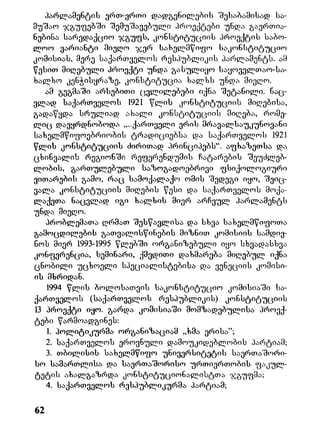 პარლამენტის ერთ-ერთი დადგენილების შესაბამისად სა-
მუშაო ჯგუფებში შემუშავებულ პროექტები უნდა გაერთია-
ნებინა სარედაქციო ჯგუფს, კონსტიტუციის პროექტის საბო-
ლოო ვარიანტი მიეღო ჯერ სახელმწიფო საკონსტიტუციო
კომისიას, მერე საქართველოს რესპუბლიკის პარლამენტს. ამ
წესით მიღებული პროექტი უნდა გასულიყო საყოველთაო-სა-
ხალხო კენჭისყრაზე. კონსტიტუცია ხალხს უნდა მიეღო.
ამ გეგმაში არსებითი ცვლილებები იქნა შეტანილი. ნაც-
ვლად საქართველოს 1921 წლის კონსტიტუციის მიღებისა,
გადაწყდა სრულიად ახალი კონსტიტუციის მიღება, რომე-
ლიც დაეყრდნობოდა „...ქართველი ერის მრავალსაუკუნოვანი
სახელმწიფოებრიობის ტრადიციებსა და საქართველოს 1921
წლის კონსტიტუციის ძირითად პრინციპებს“. აფხაზეთსა და
ცხინვალის რეგიონში რეფერენდუმის ჩატარების შეუძლებ-
ლობის, გართულებული საზოგადოებრივი ფსიქოლოგიური
ვითარების გამო, რაც სამოქალაქო ომის შედეგი იყო, შეიც-
ვალა კონსტიტუციის მიღების წესი და საქართველოს მოქა-
ლაქეთა ნაცვლად იგი ხალხის მიერ არჩეულ პარლამენტს
უნდა მიეღო.
პრობლემათა ღრმად შესწავლისა და სხვა სახელმწიფოთა
გამოცდილების გათვალისწინების მიზნით კომისიის სამდივ-
ნოს მიერ 1993-1995 წლებში ორგანიზებული იყო სხვადასხვა
კონფერენცია, სემინარი, ქმედითი დახმარება მიღებულ იქნა
ცნობილი უცხოელი სპეციალისტებისა და ვენეციის კომისი-
ის მხრიდან.
1994 წლის ბოლოსათვის საკონსტიტუციო კომისიაში სა-
ქართველოს (საქართველოს რესპუბლიკის) კონსტიტუციის
13 პროექტი იყო. გარდა კომისიაში მომზადებულისა პროექ-
ტები წარმოადგინეს:
1. პოლიტიკურმა ორგანიზაციამ „ხმა ერისა“;
2. საქართველოს ეროვნული დამოუკიდებლობის პარტიამ;
3. თბილისის სახელმწიფო უნივერსიტეტის საერთაშორი-
სო სამართლისა და საერთაშორისო ურთიერთობის ფაკულ-
ტეტის ახალგაზრდა კონსტიტუციონალისტთა ჯგუფმა;
4. საქართველოს რესპუბლიკურმა პარტიამ;
62